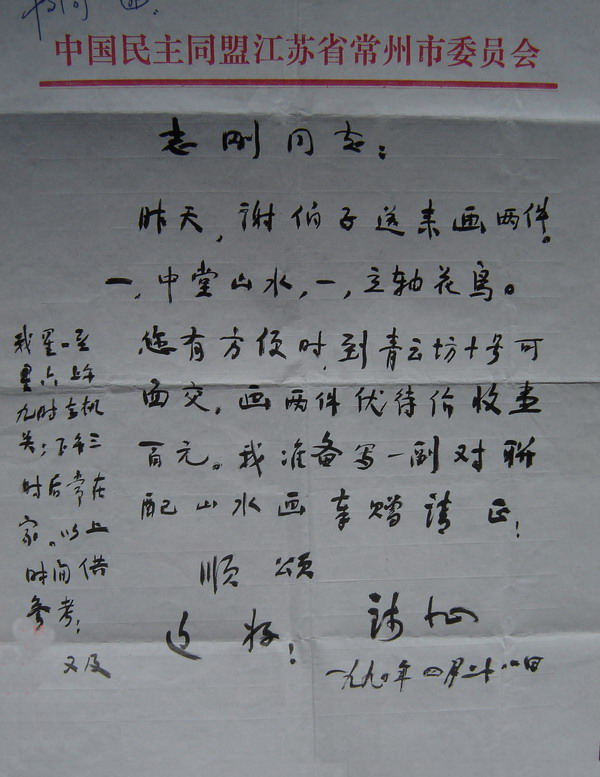 中国民主同盟江苏省常州市委员会
志刚同志：
昨天，谢伯子送来画两件。
一，中堂山水，一，立轴花鸟。
您有方便时，到青云坊十号可
面交，画两件优待价收壹
百元。我准备写一副对联
配山水画奉赠请正！
顺颂
近好！
一九九〇年四月二十八日
我星一至
星六上午
九时在机
关；下午三
时后常在
家。以上
时间供
参考；
又及